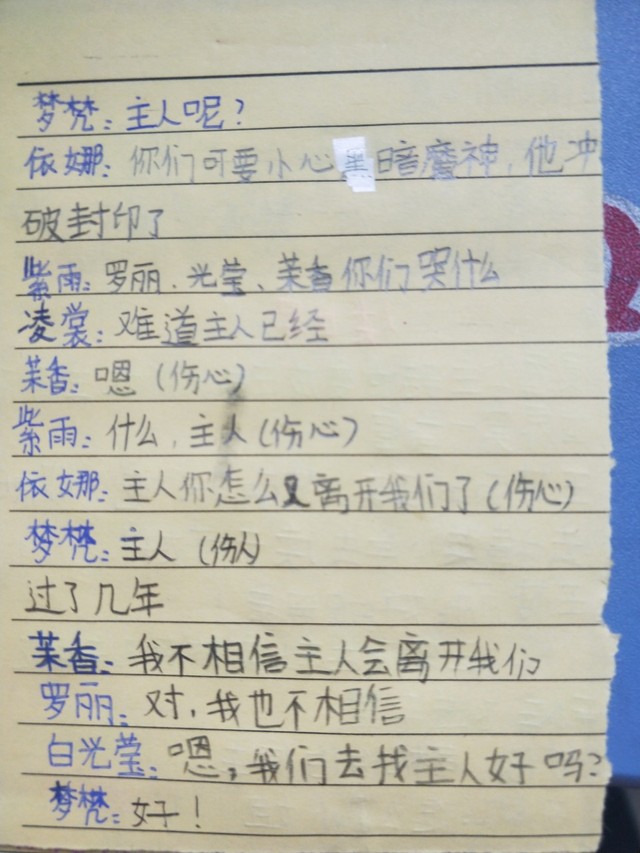 梦梵：主人呢？
依娜：你们可要小心黑暗魔神，他冲
破封印了
紫雨：罗丽、光莹、茉香你们哭什么
凌裳：难道主人已经
茉香：嗯（伤心）
紫雨：什么，主人（伤心）
依娜：主人你怎么又离开我们了（伤心）
梦梵：主人（伤人）
过了几年
茉香：我不相信主人会离开我们
罗丽：对，我也不相信
白光莹：嗯，我们去找主人好吗？
梦梵：好！